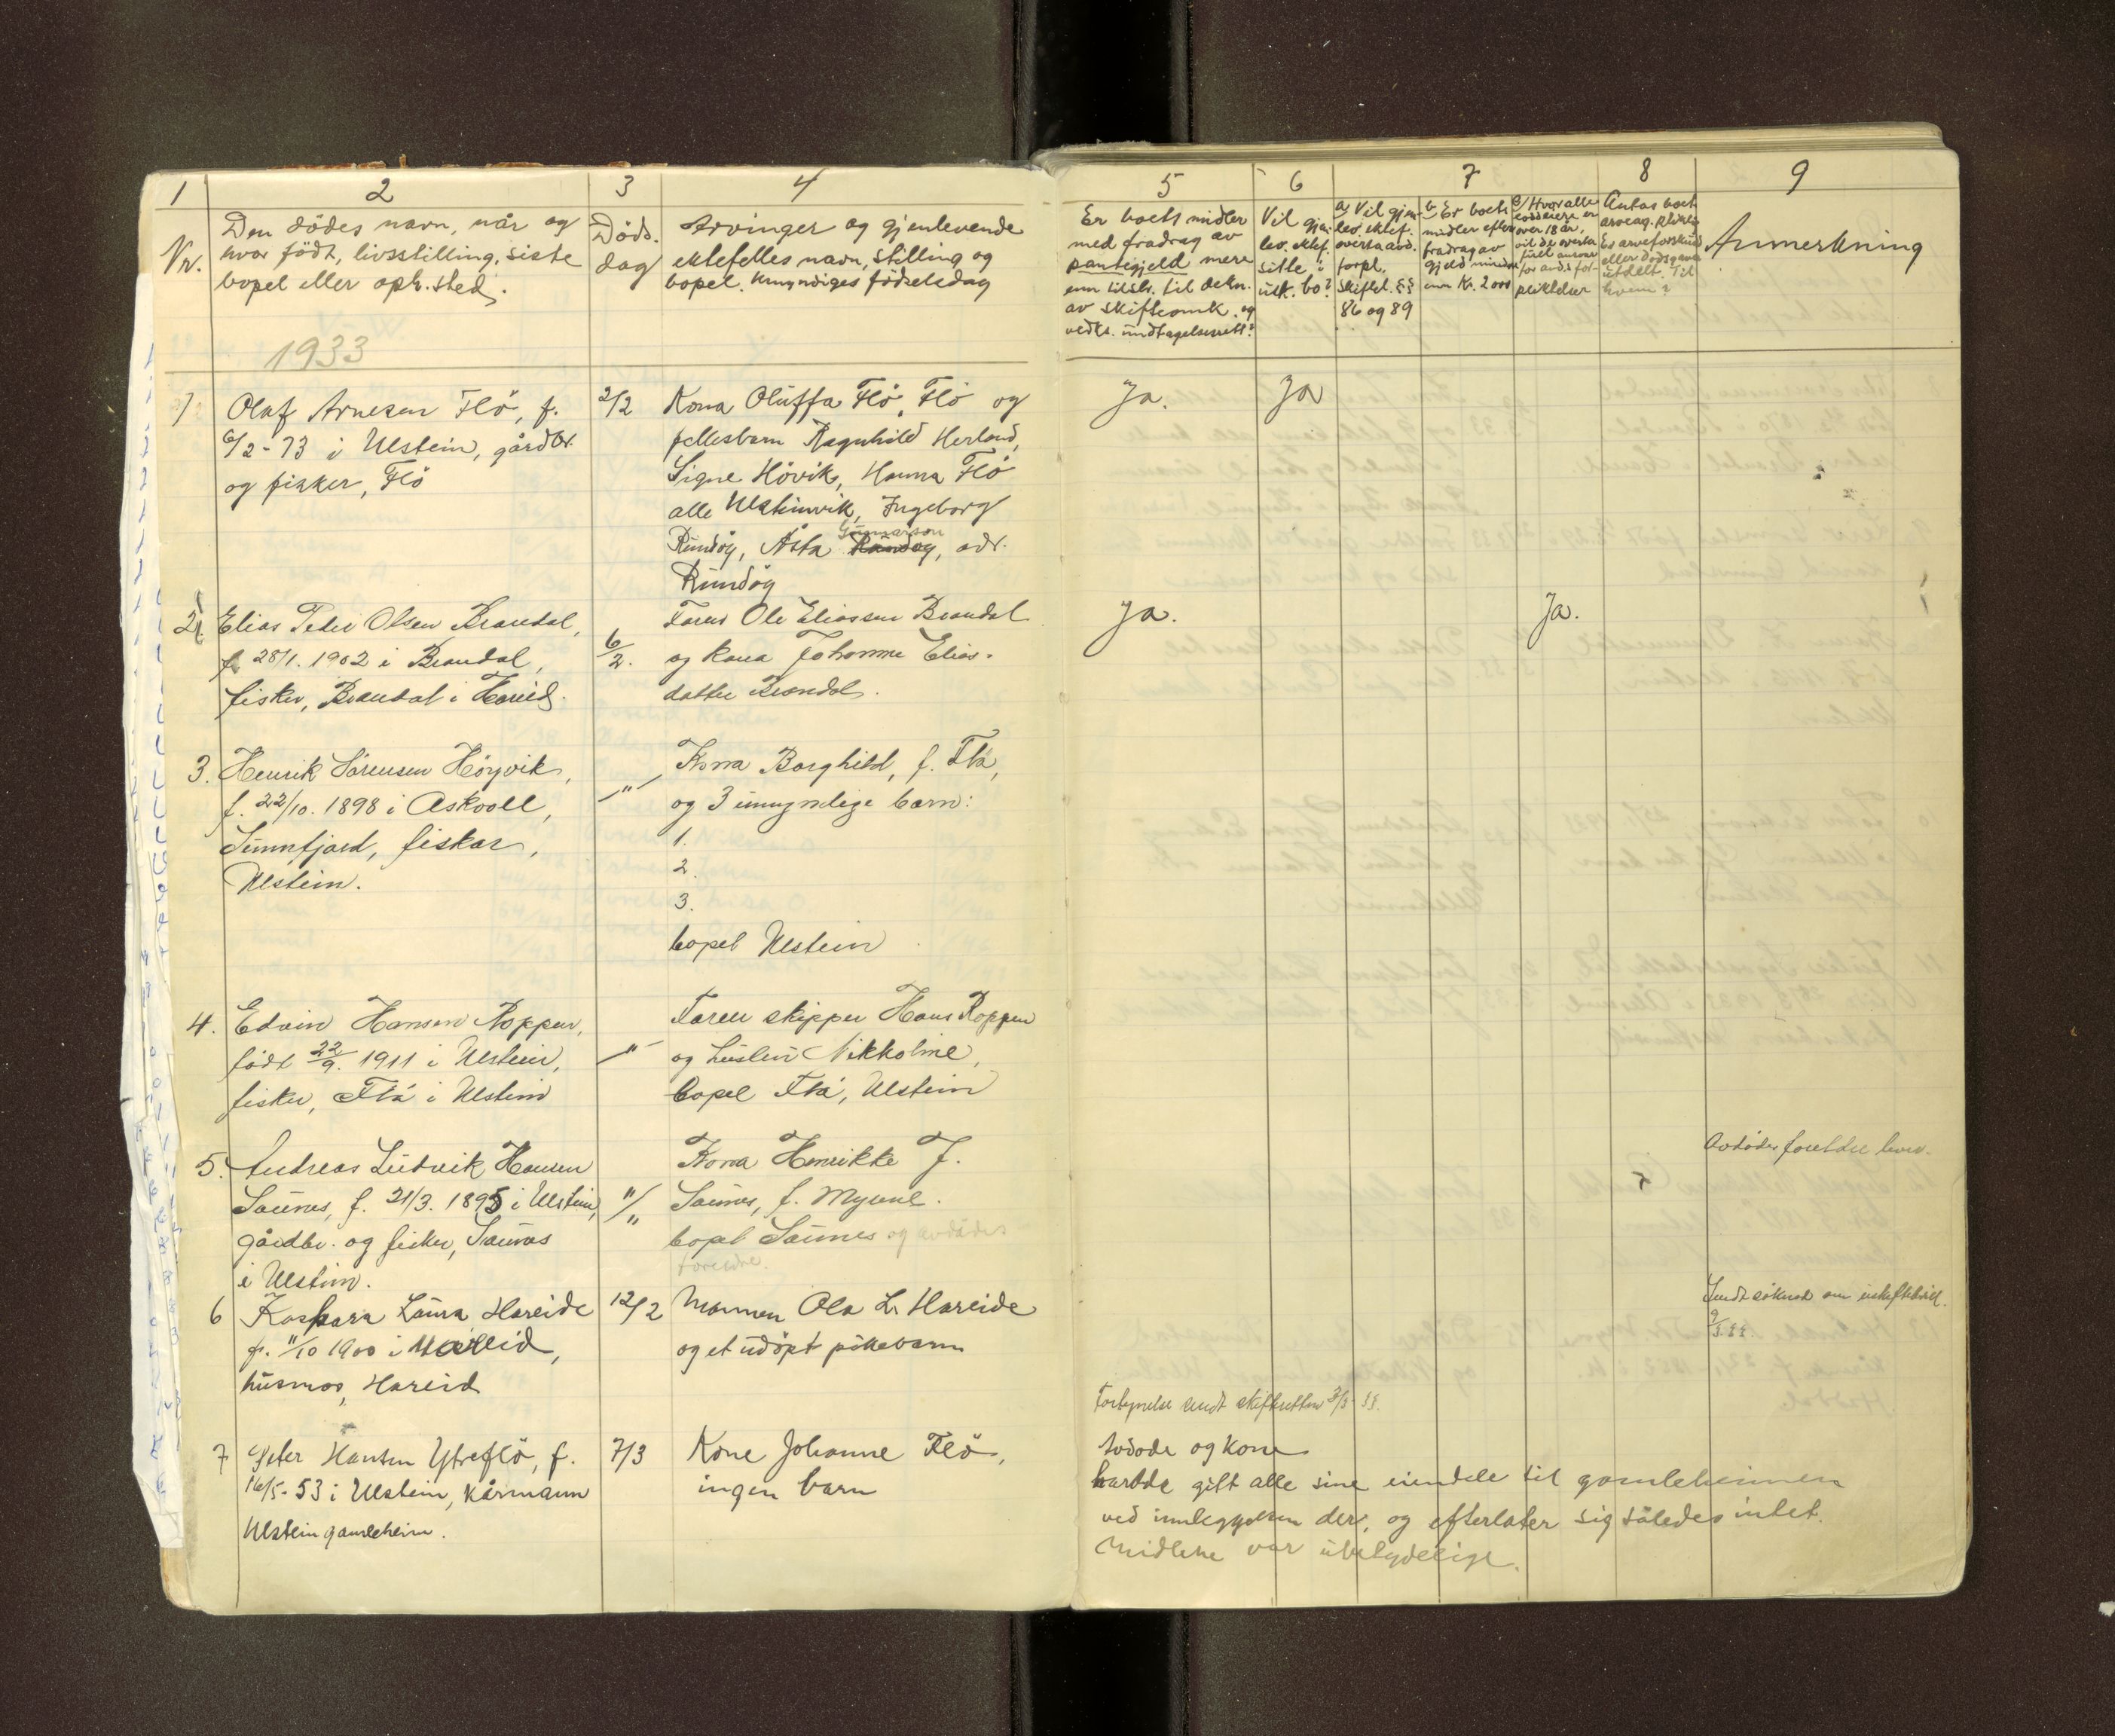 1 2 3 4 5 6 7 8 9
Nr.
Den dödes navn, når og
hvor födt, livsstilling, siste
bopel eller oph. sted.
Döds-
dag
Arvinger og gjenlevende
ektefelles navn, stilling og
bopel. Umyndiges födselsdag
Er boets midler
med fradrag av
pantegjeld mere
enn tilstr. til dekn.
av skifteomk. og
vedk. undtagelsesrett?
Vil gjen-
lev. ektef.
sitte i
usk. bo?
a, Vil gjen-
lev. ektef.
overta avd.
forpl.
skiftel. §§
86 og 89
b, Er boets
midler efter
fradrag av
gjeld mindre
enn Kr. 2000
c/ Hvor alle
loddeiere er
over 18 år,
vil de overta
fuldt ansvar
for avd.s for-
pliktelser
Antas boet
arveavg. pliktig
Er arveforskud
eller dödsgave
utdelt. Til
hvem?
Anmerkning
1933
1 Olaf Arnesen Flö, f. 2/2 Kona Oluffa Flö, Flö og Ja. Ja
6/2-73 i Ulstein, gårdbr. fellesbarn Ragnhild Herland,
og fisker, Flö Signe Hövik, Hanna Flö
alle Ulsteinvik, Ingeborg
Gunnarson
Rundöy, Åsta Rundöy, adr.
Rundöy
2. Elias Peder Olsen Brandal, Faren Ole Eliassen Brandal Ja. Ja.
f. 28/1. 1902 i Brandal, 6/2. og kona Johanne Elias-
fisker, Brandal i Hareid. datter Brandal.
3. Henrik Sörensen Höyvik, Kona Borghild, f. Flå,
f. 22/10. 1898 i Askvoll, –"– og 3 umyndige barn:
Sunnfjord, fisker, 1.
Ulstein. 2.
3.
bopel Ulstein
4. Edvin Hansen Roppen, Faren skipper Hans Roppen
födt 22/9. 1911 i Ulstein, –"– og hustru Nikoline,
fisker, Flå i Ulstein bopel Flå, Ulstein
5. Andreas Ludvik Hansen Kona Henrikke J. Avdödes foreldre lever.
Saunes, f. 21/3. 1895 i Ulstein, "/" Saunes, f. Myrene.
gårdbr. og fisker, Saunes bopel Saunes og avdödes
i Ulstein. foreldre.
6 Kaspara Laura Hareide 12/2 Mannen Ola L. Hareide
f. 11/10 1900 i Hareid, og et udöpt pikebarn
husmor, Hareid
Forteynelse sendt skifteretten 3/3-33.
7 Peter Hansen Ytreflö, f. 7/3 Kone Johanne Flö, Avdöde og kone
16/5-53 i Ulstein, kårmann ingen barn hadde gitt alle sine eiendele til gamleheimen
Ulstein gamleheim. ved innleggelsen der, og efterlater sig således intet.
Midlene var ubetydelige.